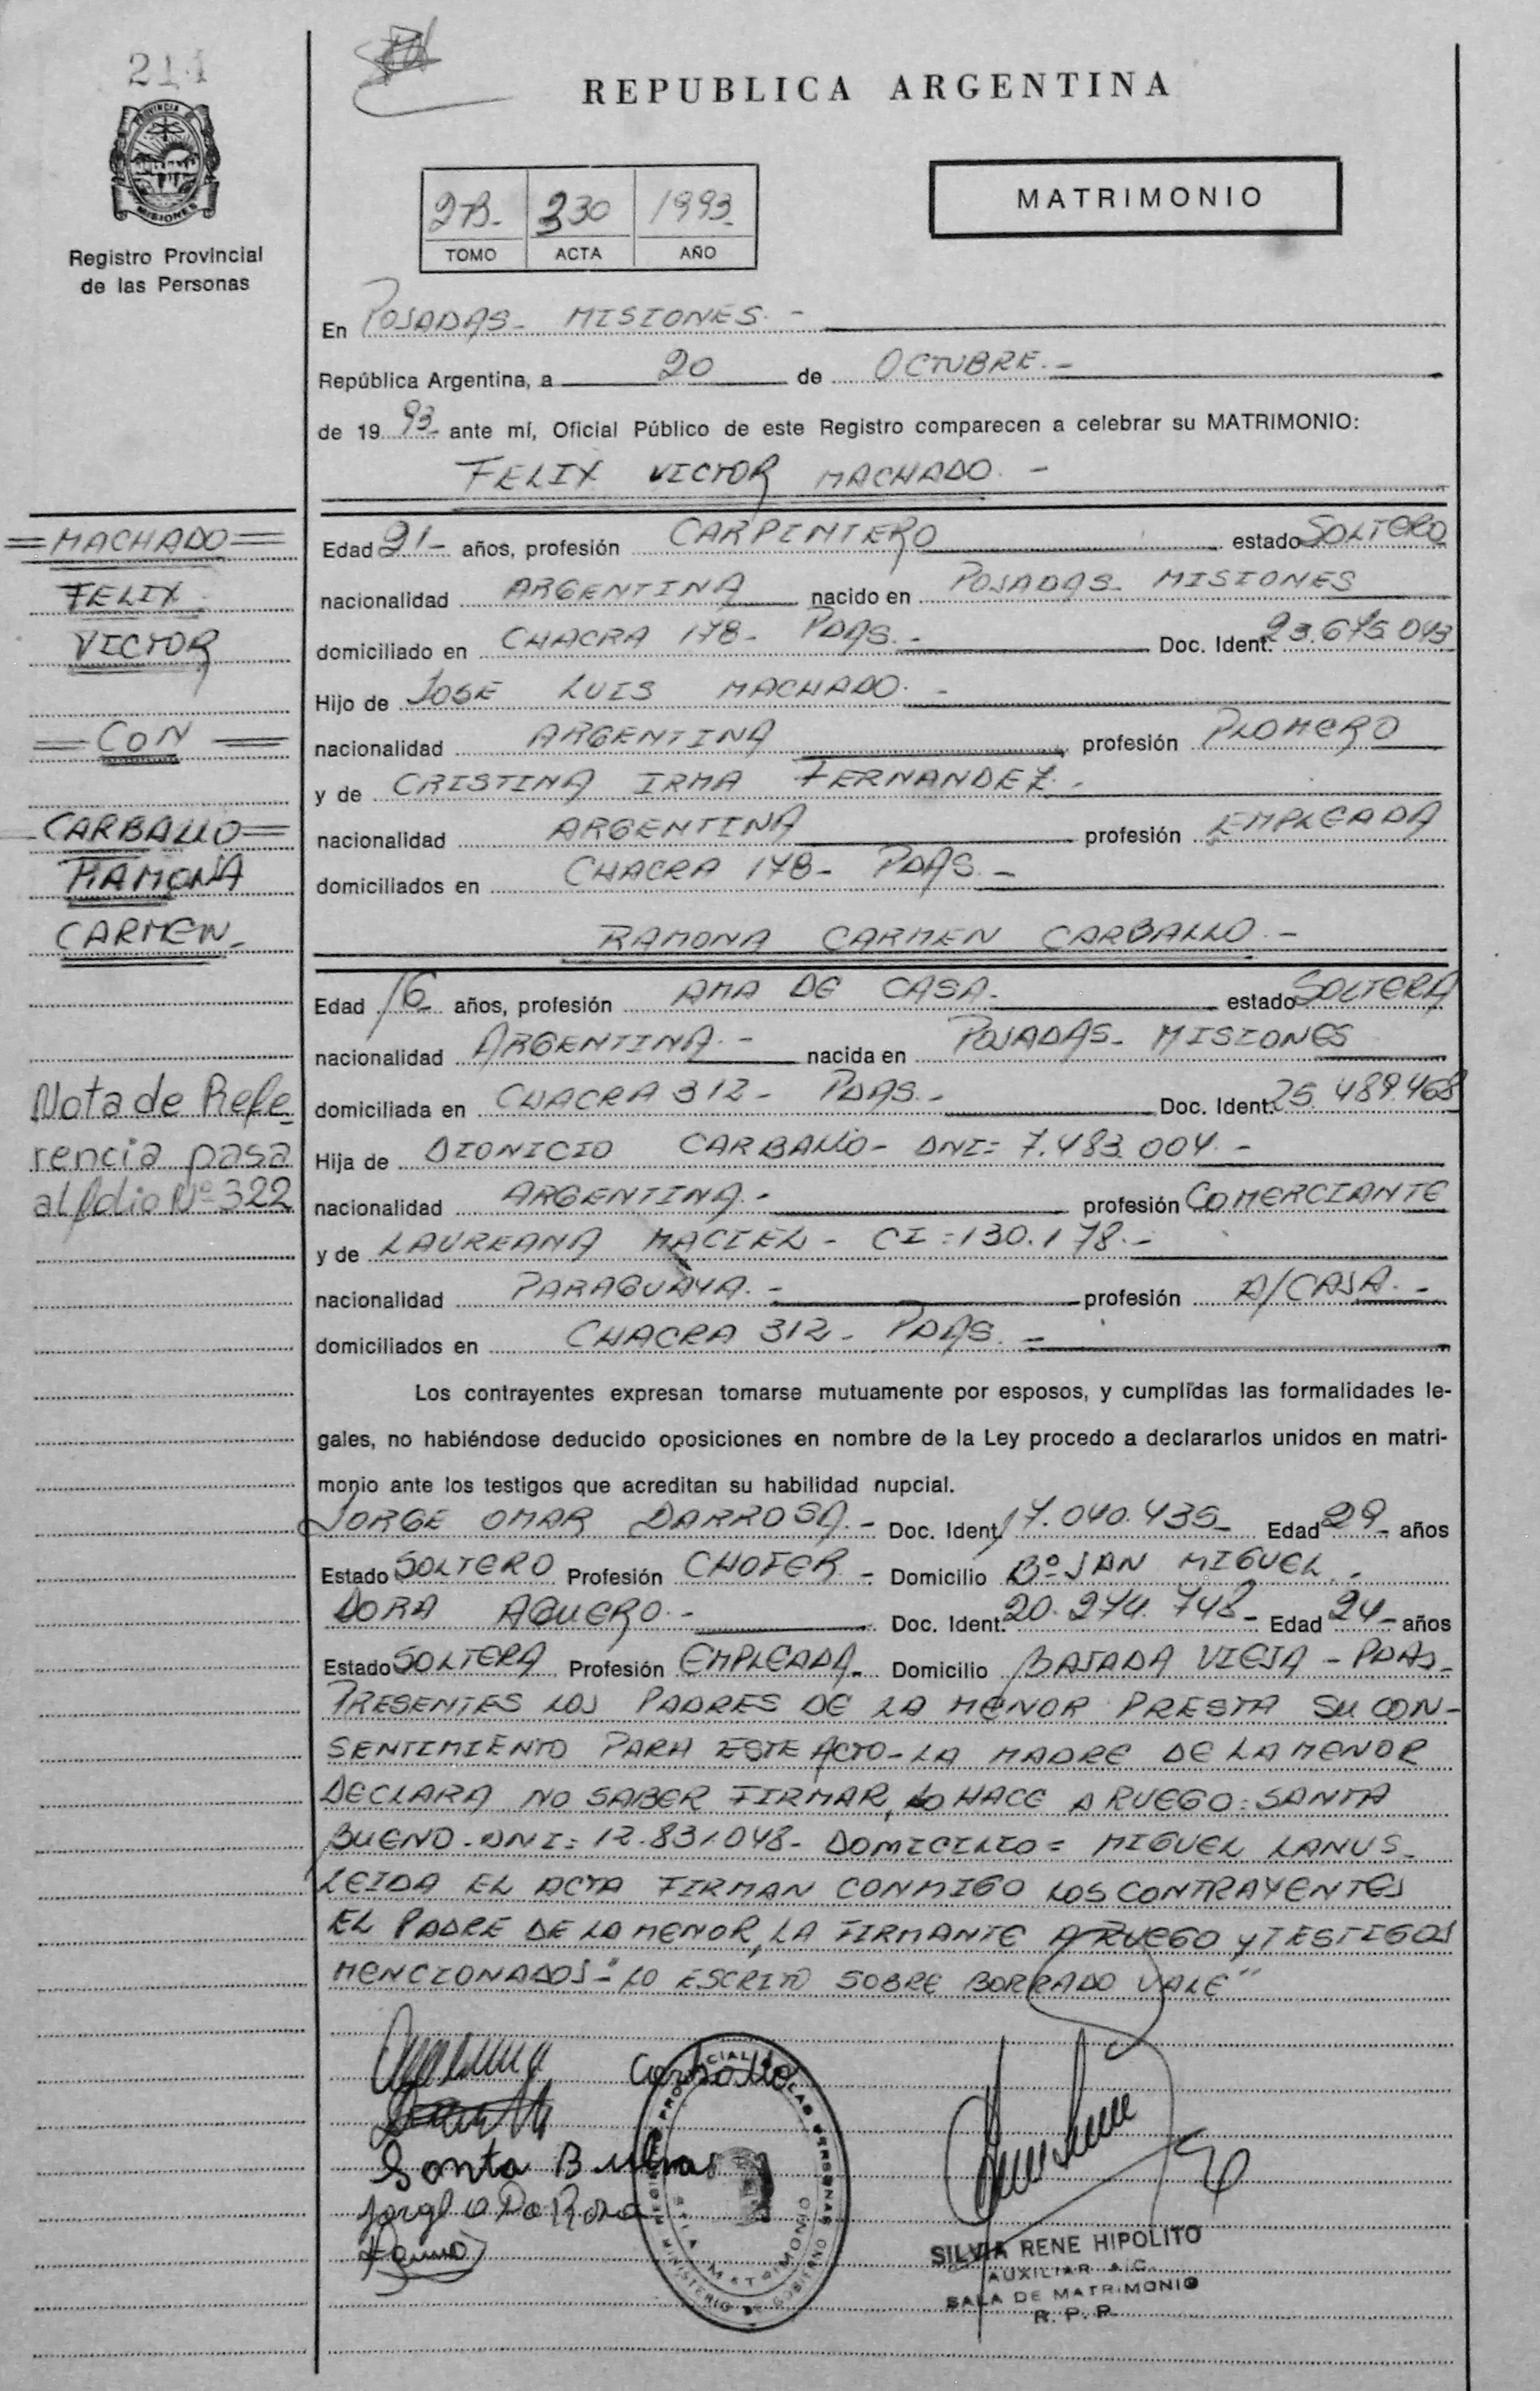 211
PROVINCIA DE
MISIONES
Registro Provincial
de las Personas
REPUBLICA ARGENTINA
MATRIMONIO
2B- 330 1993-
TOMO ACTA AÑO
En POSADAS- MISIONES.-
República Argentina, a 20 de OCTUBRE.-
de 1993- ante mí, Oficial Público de este Registro comparecen a celebrar su MATRIMONIO:
FELIX VICTOR MACHADO.-
=MACHADO=
FELIX
VICTOR
=CON=
CARBALLO=
RAMONA
CARMEN-
Nota de Refe-
rencia pasa
al folio Nº 322
Edad 21- años, profesión CARPINTERO estado SOLTERO
nacionalidad ARGENTINA nacido en POSADAS- MISIONES
domiciliado en CHACRA 178- PDAS.- Doc. Ident. 23.675.043
Hijo de JOSE LUIS MACHADO.-
nacionalidad ARGENTINA profesión PLOMERO
y de CRISTINA IRMA FERNANDEZ.-
nacionalidad ARGENTINA profesión EMPLEADA
domiciliados en CHACRA 178- PDAS.-
RAMONA CARMEN CARBALLO.-
Edad 16 años, profesión AMA DE CASA- estado SOLTERA
nacionalidad ARGENTINA.- nacida en POSADAS- MISIONES
domiciliada en CHACRA 312- PDAS.- Doc. Ident. 25.489.468
Hija de DIONICIO CARBALLO- DNI= 7.483.004.-
nacionalidad ARGENTINA.- profesión COMERCIANTE
y de LAUREANA MACIEL- CI=130.178.-
nacionalidad PARAGUAYA.- profesión A/CASA.-
domiciliados en CHACRA 312- PDAS.-
Los contrayentes expresan tomarse mutuamente por esposos, y cumplidas las formalidades le-
gales, no habiéndose deducido oposiciones en nombre de la Ley procedo a declararlos unidos en matri-
monio ante los testigos que acreditan su habilidad nupcial.
JORGE OMAR DARROSA.- Doc. Ident. 17.040.435- Edad 29- años
Estado SOLTERO Profesión CHOFER- Domicilio Bº SAN MIGUEL.-
DORA AGUERO.- Doc. Ident. 20.274.748- Edad 24- años
Estado SOLTERA Profesión EMPLEADA- Domicilio BAJADA VIEJA - PDAS-
PRESENTES LOS PADRES DE LA MENOR PRESTA SU CON-
SENTIMIENTO PARA ESTE ACTO- LA MADRE DE LA MENOR
DECLARA NO SABER FIRMAR, LO HACE A RUEGO: SANTA
BUENO- DNI= 12.831.048- DOMICILIO= MIGUEL LANUS-
LEIDA EL ACTA FIRMAN CONMIGO LOS CONTRAYENTES
EL PADRE DE LA MENOR, LA FIRMANTE A RUEGO Y TESTIGOS
MENCIONADOS- "LO ESCRITO SOBRE BORRADO VALE"
Carballo
Santa Bueno
Jorge O Da Rosa
SALA MATRIMONIO
MINISTERIO DE GOBIERNO
SILVIA RENE HIPOLITO
AUXILIAR A/C.
SALA DE MATRIMONIO
R. P. P.